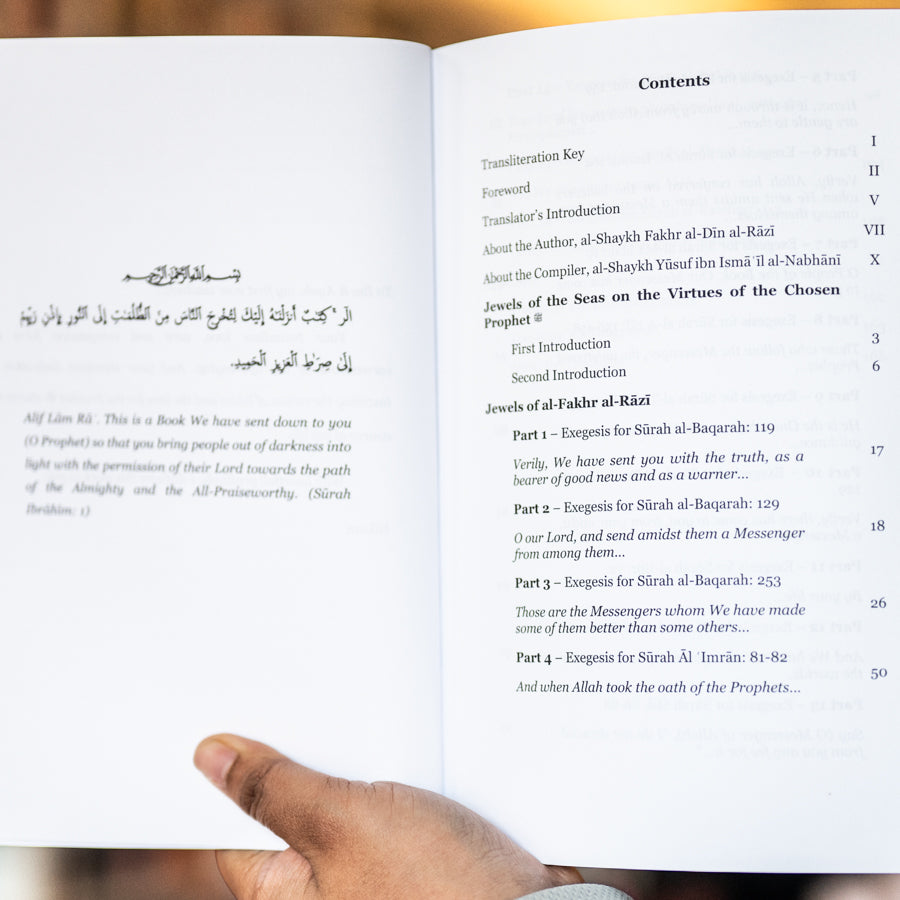 بسم الله الرحمن الرحيم
الٓر ۚ كِتَٰبٌ أَنزَلْنَٰهُ إِلَيْكَ لِتُخْرِجَ ٱلنَّاسَ مِنَ ٱلظُّلُمَٰتِ إِلَى ٱلنُّورِ بِإِذْنِ رَبِّهِمْ
إِلَىٰ صِرَٰطِ ٱلْعَزِيزِ ٱلْحَمِيدِ.
Alif Lām Rāʾ. This is a Book We have sent down to you
(O Prophet) so that you bring people out of darkness into
light with the permission of their Lord towards the path
of the Almighty and the All-Praiseworthy. (Sūrah
Ibrāhīm: 1)
Contents
Transliteration Key I
Foreword II
Translator's Introduction V
About the Author, al-Shaykh Fakhr al-Dīn al-Rāzī VII
About the Compiler, al-Shaykh Yūsuf ibn Ismāʿīl al-Nabhānī X
Jewels of the Seas on the Virtues of the Chosen
Prophet ﷺ
First Introduction 3
Second Introduction 6
Jewels of al-Fakhr al-Rāzī
Part 1 – Exegesis for Sūrah al-Baqarah: 119
Verily, We have sent you with the truth, as a 17
bearer of good news and as a warner...
Part 2 – Exegesis for Sūrah al-Baqarah: 129
O our Lord, and send amidst them a Messenger 18
from among them...
Part 3 – Exegesis for Sūrah al-Baqarah: 253
Those are the Messengers whom We have made 26
some of them better than some others...
Part 4 – Exegesis for Sūrah Āl ʿImrān: 81-82
And when Allah took the oath of the Prophets... 50